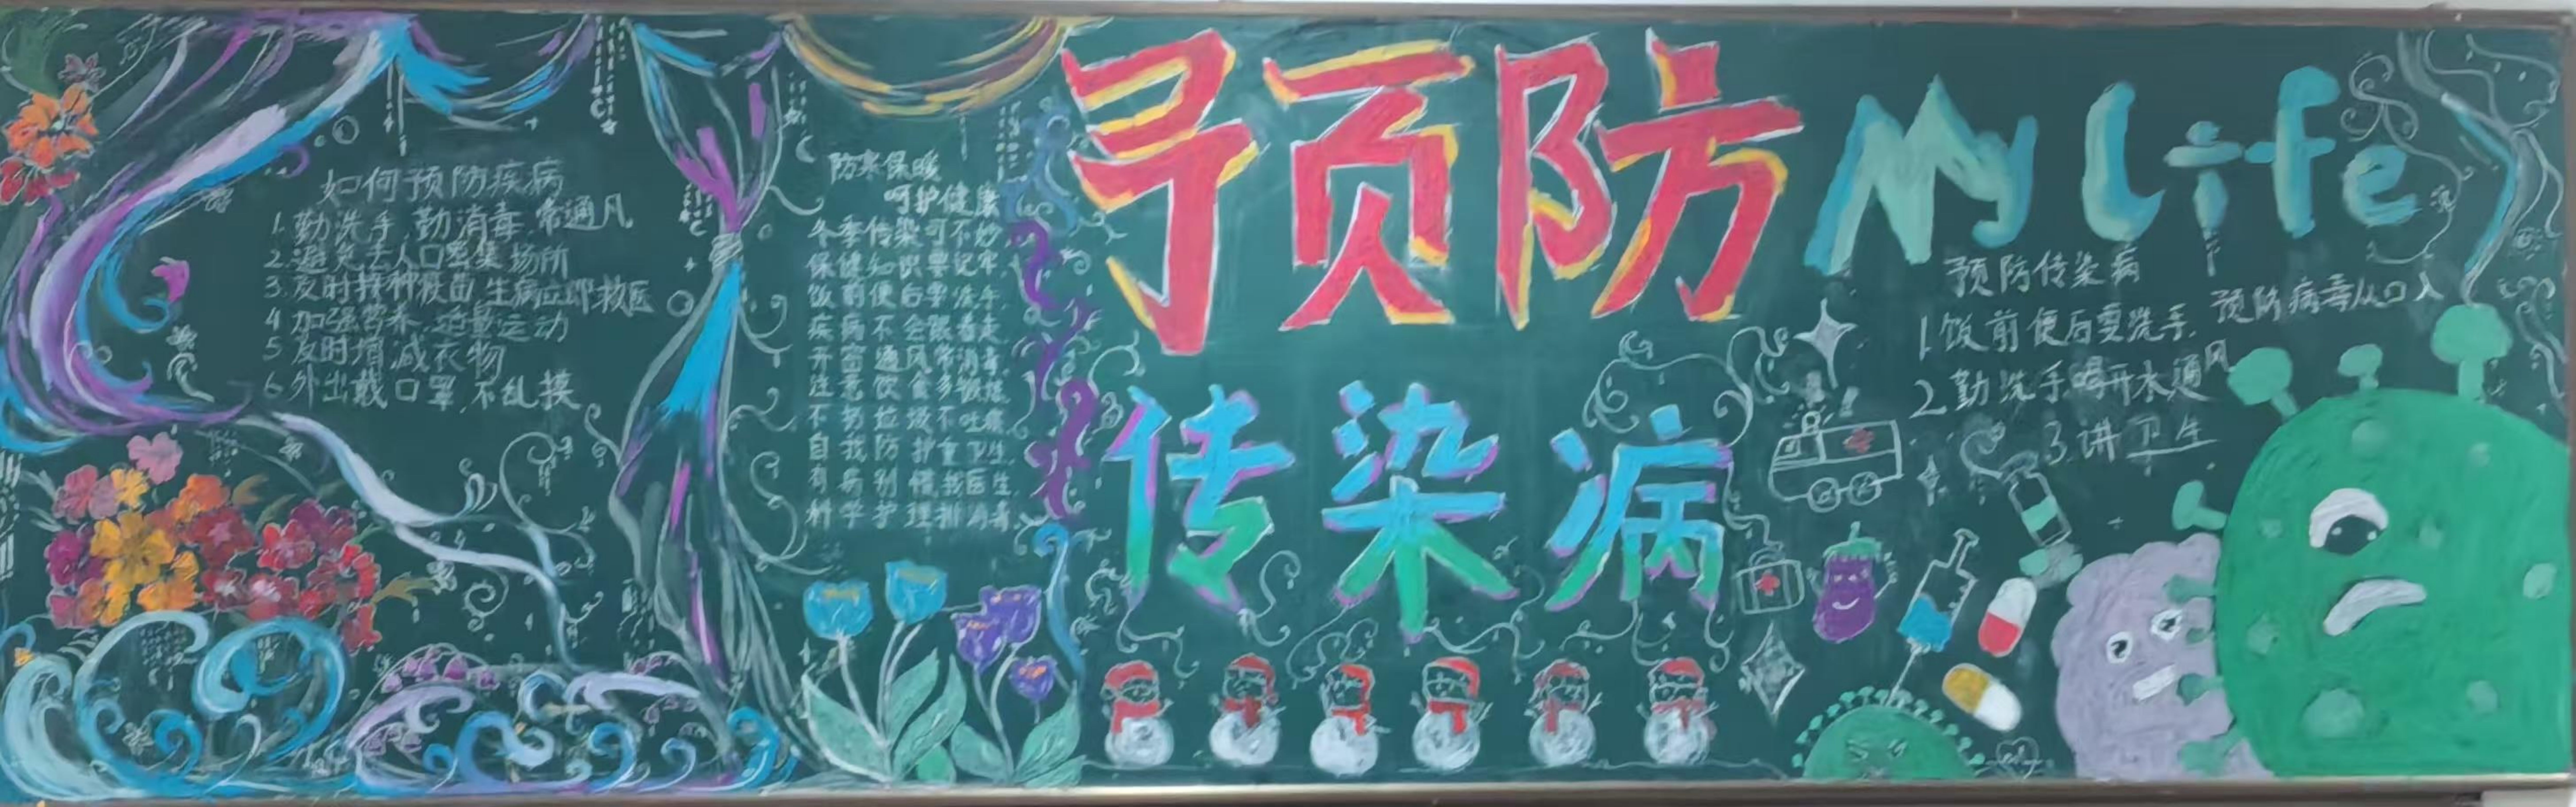 如何预防疾病
1.勤洗手 勤消毒 常通风
2.避免去人口密集场所
3.及时接种疫苗 生病立即救医
4 加强营养,适量运动
5 及时增减衣物
6 外出戴口罩,不乱摸
防寒保暖
呵护健康
冬季传染可不妙
保健知识要记牢
饭前便后要洗手
疾病不会跟着走
开窗通风常消毒
注意饮食多
不扔垃圾不吐痰
自我防护重卫生
有病别慌找医生
科学护理
预防
传染病
My life
预防传染病
预防病毒从口入
1.饭前便后要洗手
2 勤洗手喝开水通风
3.讲卫生